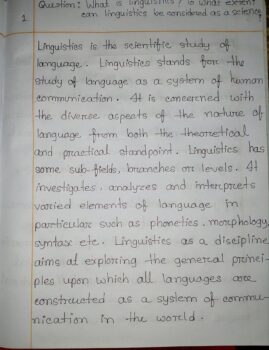 Question: What is linguistics? To what extent
1. can linguistics be considered as a science
Linguistics is the scientific study of
language. Linguistics stands for the
study of language as a system of human
communication. It is concerned with
the diverse aspects of the nature of
language from both the theoretical
and practical standpoint. Linguistics has
some sub-fields, branches or levels. It
investigates, analyzes and interprets
varied elements of language in
particular such as phonetics, morphology,
syntax etc. Linguistics as a discipline
aims at exploring the general princi-
ples upon which all languages are
constructed as a system of commu-
nication in the world.